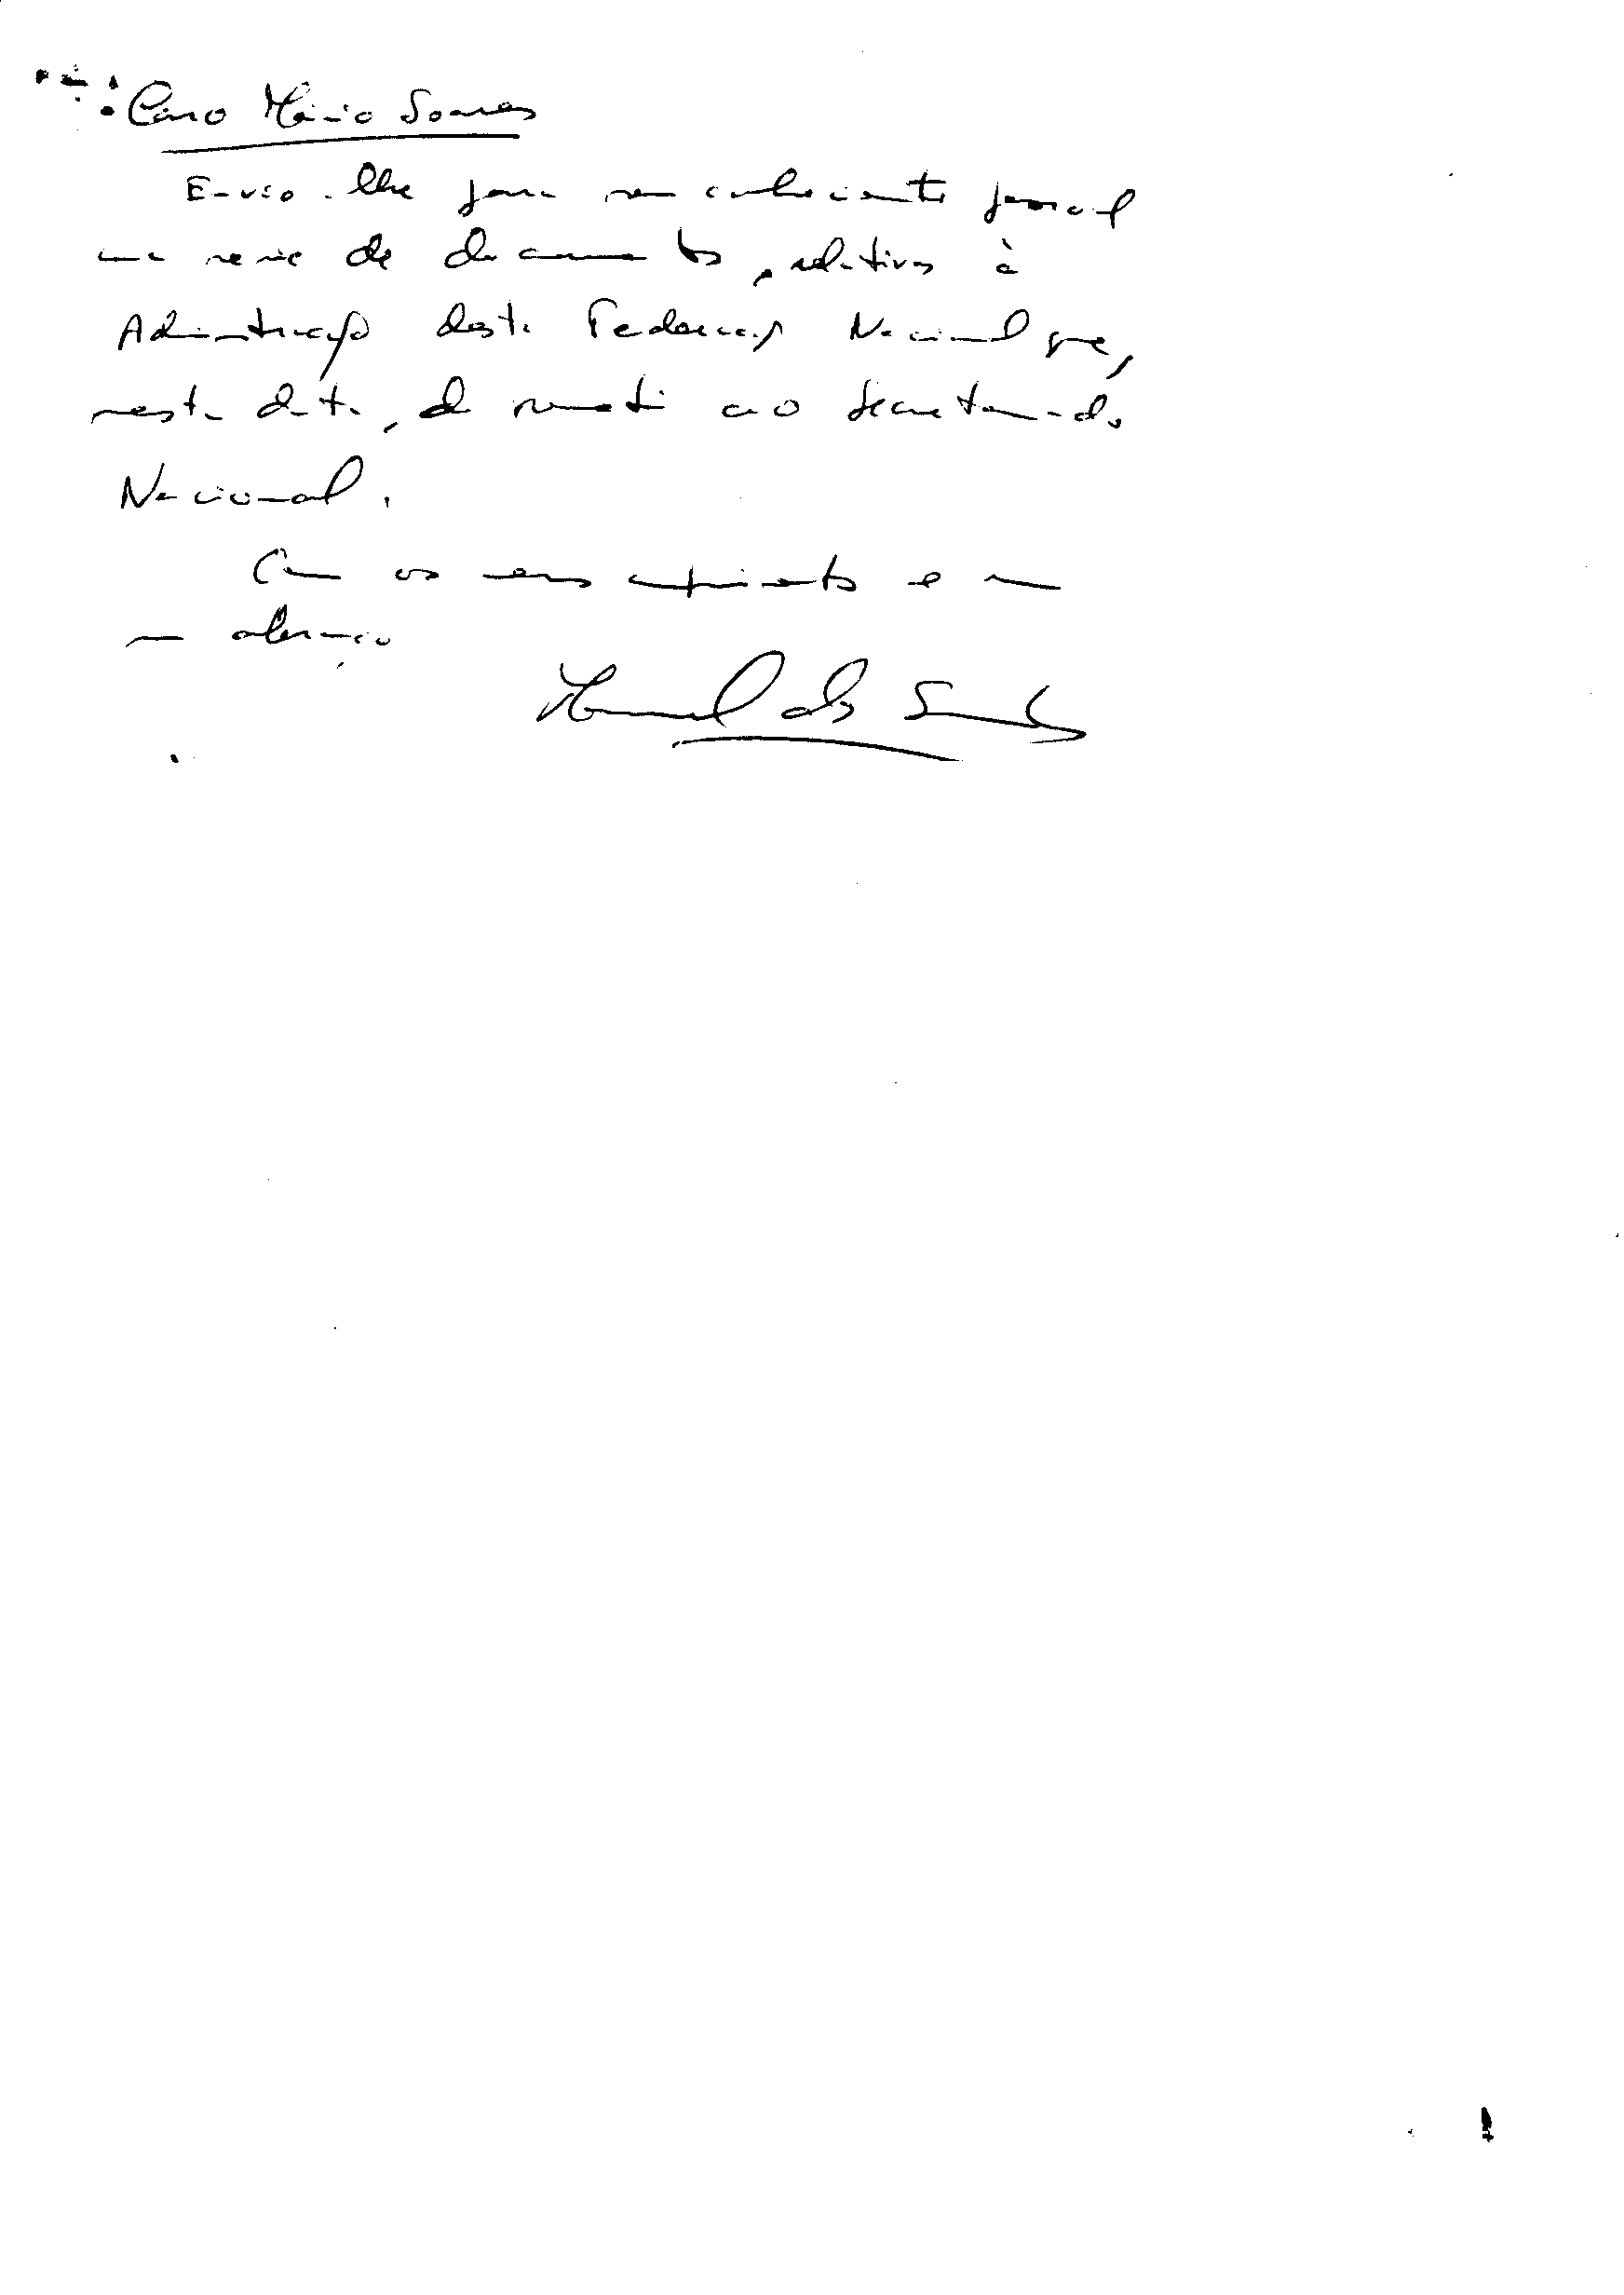 Caro Mário Soares
Envio-lhe para seu conhecimento pessoal
uma serie de documentos, relativos à
Administração desta Federação Nacional que,
nesta data, remeti ao Secretariado
Nacional.
Com os meus cumprimentos e
um abraço
Manuel dos Santos